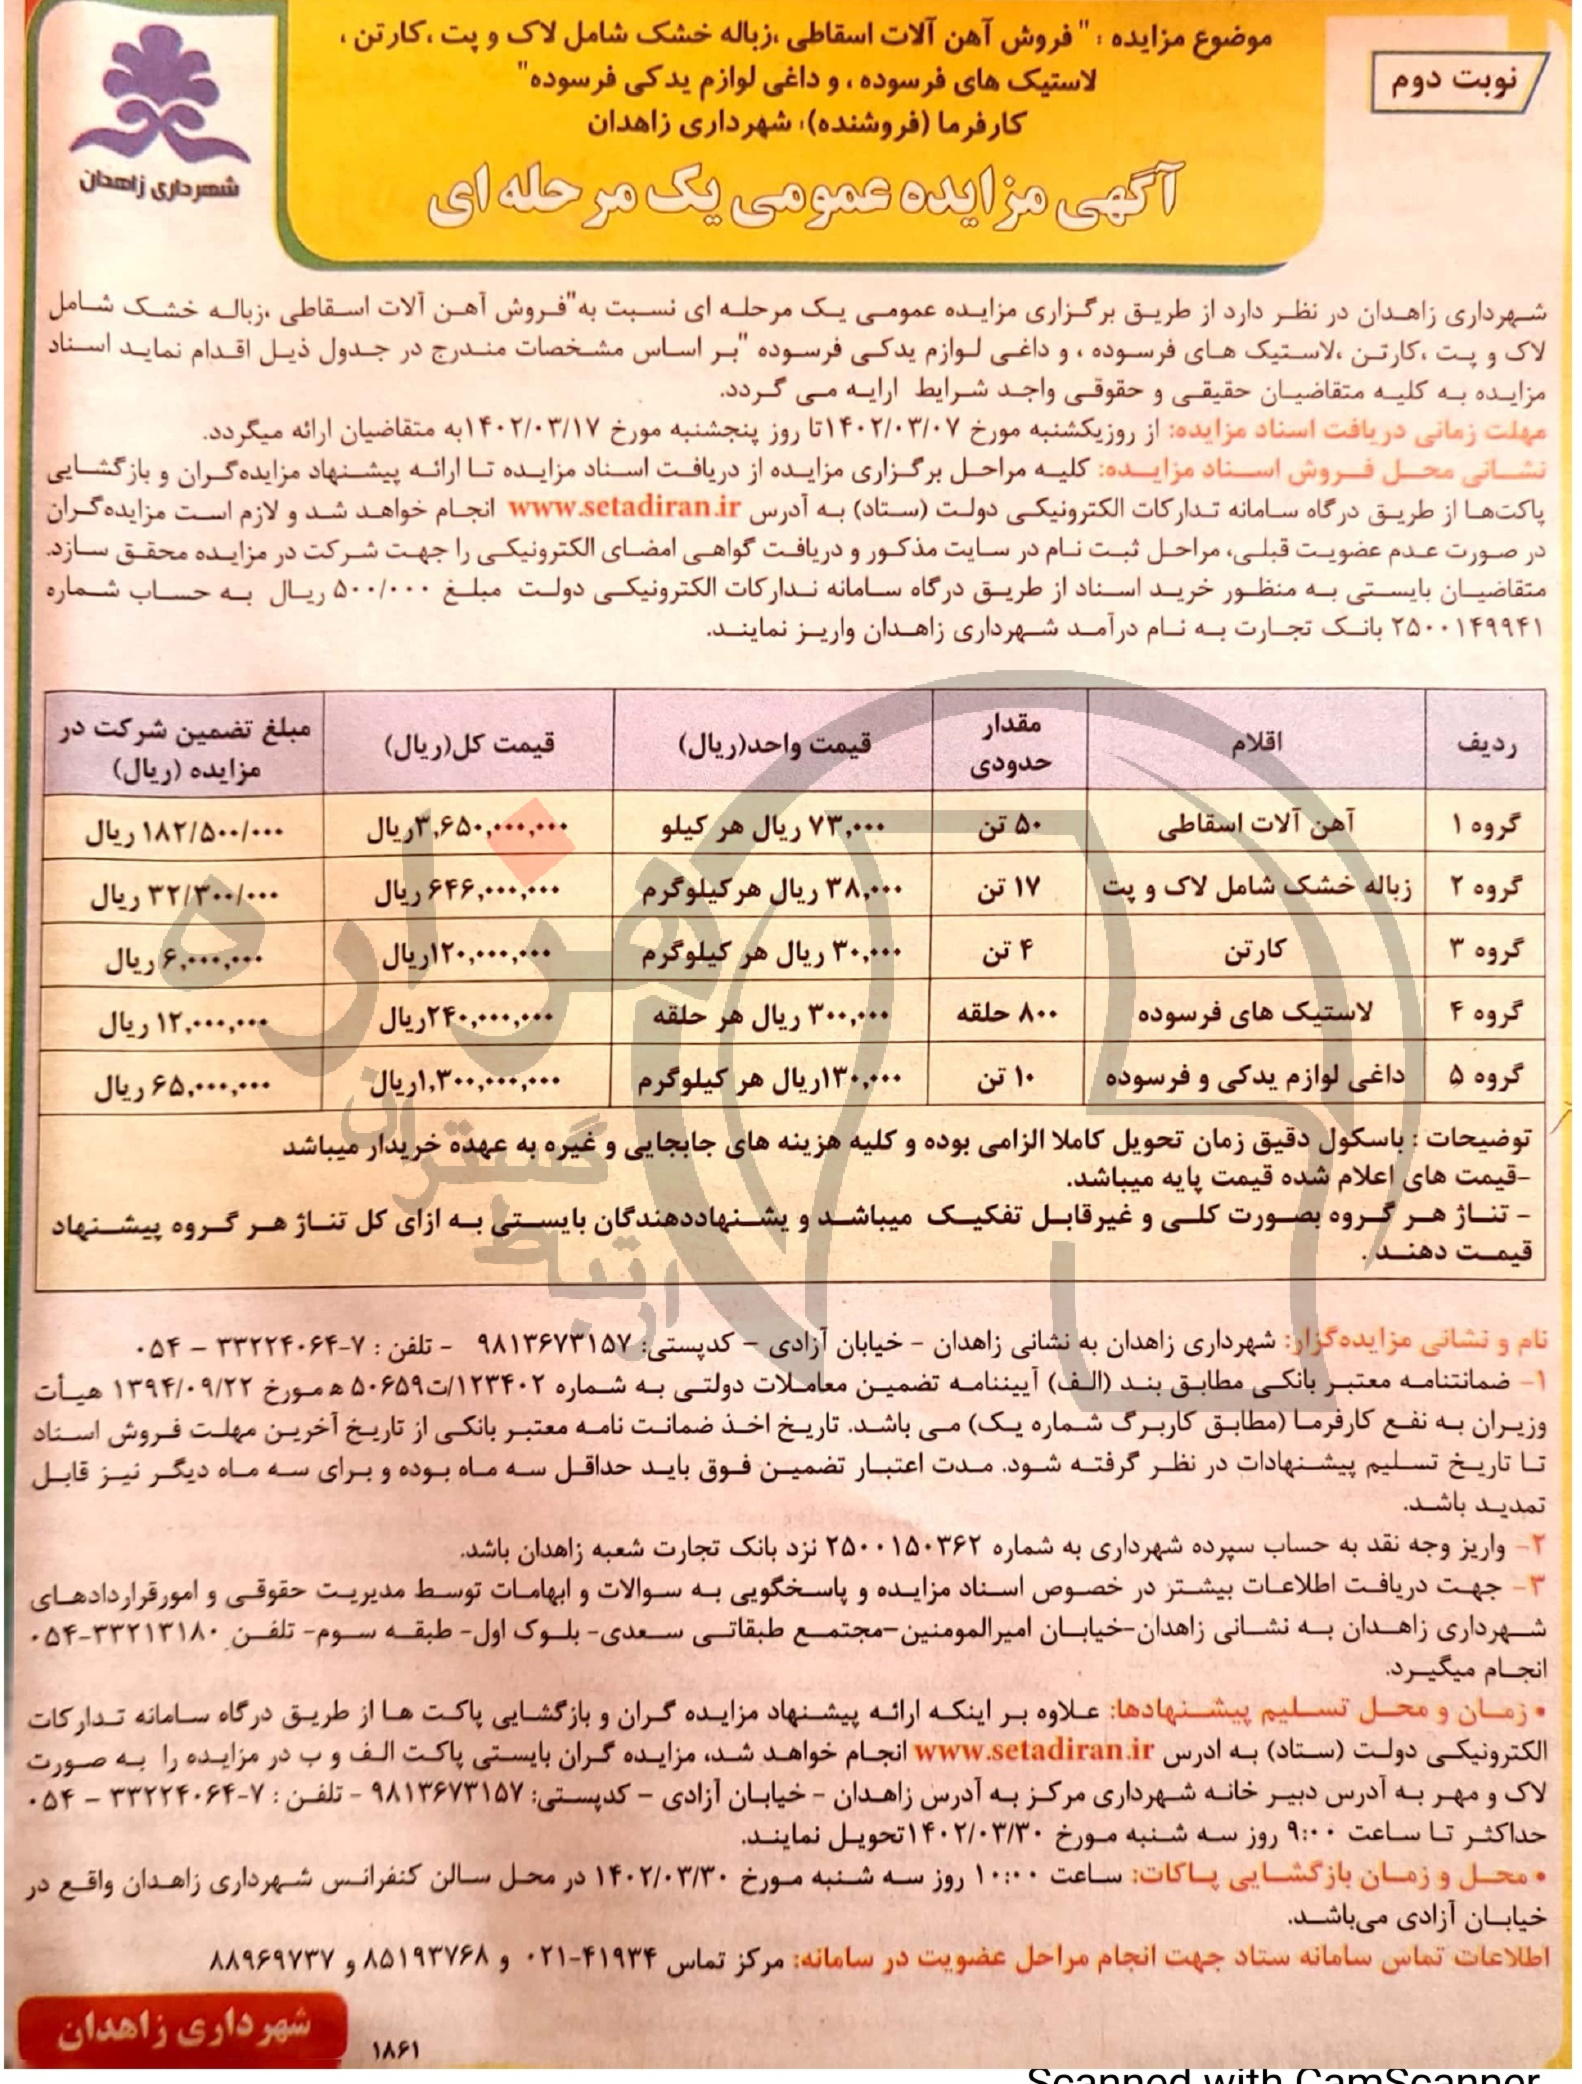 نوبت دوم
موضوع مزایده : " فروش آهن آلات اسقاطی ،زباله خشک شامل لاک و پت ،کارتن ،
لاستیک های فرسوده ، و داغی لوازم یدکی فرسوده"
کارفرما (فروشنده): شهرداری زاهدان
آگهی مزایده عمومی یک مرحله ای
شهرداری زاهدان
شهرداری زاهدان در نظر دارد از طریق برگزاری مزایده عمومی یک مرحله ای نسبت به"فروش آهن آلات اسقاطی ،زباله خشک شامل
لاک و پت ،کارتن ،لاستیک های فرسوده ، و داغی لوازم یدکی فرسوده "بر اساس مشخصات مندرج در جدول ذیل اقدام نماید اسناد
مزایده به کلیه متقاضیان حقیقی و حقوقی واجد شرایط ارایه می گردد.
مهلت زمانی دریافت اسناد مزایده: از روزیکشنبه مورخ ۱۴۰۲/۰۳/۰۷تا روز پنجشنبه مورخ ۱۴۰۲/۰۳/۱۷به متقاضیان ارائه میگردد.
نشانی محل فروش اسناد مزایده: کلیه مراحل برگزاری مزایده از دریافت اسناد مزایده تا ارائه پیشنهاد مزایده‌گران و بازگشایی
پاکت‌ها از طریق درگاه سامانه تدارکات الکترونیکی دولت (ستاد) به آدرس www.setadiran.ir انجام خواهد شد و لازم است مزایده‌گران
در صورت عدم عضویت قبلی، مراحل ثبت نام در سایت مذکور و دریافت گواهی امضای الکترونیکی را جهت شرکت در مزایده محقق سازد.
متقاضیان بایستی به منظور خرید اسناد از طریق درگاه سامانه تدارکات الکترونیکی دولت مبلغ ۵۰۰/۰۰۰ ریال به حساب شماره
۲۵۰۰۱۴۹۹۴۱ بانک تجارت به نام درآمد شهرداری زاهدان واریز نمایند.
ردیف اقلام مقدار حدودی قیمت واحد(ریال) قیمت کل(ریال) مبلغ تضمین شرکت در مزایده (ریال)
گروه ۱ آهن آلات اسقاطی ۵۰ تن ۷۳,۰۰۰ ریال هر کیلو ۳,۶۵۰,۰۰۰,۰۰۰ریال ۱۸۲/۵۰۰/۰۰۰ ریال
گروه ۲ زباله خشک شامل لاک و پت ۱۷ تن ۳۸,۰۰۰ ریال هرکیلوگرم ۶۴۶,۰۰۰,۰۰۰ ریال ۳۲/۳۰۰/۰۰۰ ریال
گروه ۳ کارتن ۴ تن ۳۰,۰۰۰ ریال هر کیلوگرم ۱۲۰,۰۰۰,۰۰۰ریال ۶,۰۰۰,۰۰۰ ریال
گروه ۴ لاستیک های فرسوده ۸۰۰ حلقه ۳۰۰,۰۰۰ ریال هر حلقه ۲۴۰,۰۰۰,۰۰۰ریال ۱۲,۰۰۰,۰۰۰ ریال
گروه ۵ داغی لوازم یدکی و فرسوده ۱۰ تن ۱۳۰,۰۰۰ریال هر کیلوگرم ۱,۳۰۰,۰۰۰,۰۰۰ریال ۶۵,۰۰۰,۰۰۰ ریال
توضیحات : باسکول دقیق زمان تحویل کاملا الزامی بوده و کلیه هزینه های جابجایی و غیره به عهده خریدار میباشد
-قیمت های اعلام شده قیمت پایه میباشد.
- تناژ هر گروه بصورت کلی و غیرقابل تفکیک میباشد و یشنهاددهندگان بایستی به ازای کل تناژ هر گروه پیشنهاد
قیمت دهند.
نام و نشانی مزایده‌گزار: شهرداری زاهدان به نشانی زاهدان - خیابان آزادی - کدپستی: ۹۸۱۳۶۷۳۱۵۷ - تلفن : ۷-۳۳۲۲۴۰۶۴ - ۰۵۴
۱- ضمانتنامه معتبر بانکی مطابق بند (الف) آییننامه تضمین معاملات دولتی به شماره ۱۲۳۴۰۲/ت۵۰۶۵۹ ه مورخ ۱۳۹۴/۰۹/۲۲ هیأت
وزیران به نفع کارفرما (مطابق کاربرگ شماره یک) می باشد. تاریخ اخذ ضمانت نامه معتبر بانکی از تاریخ آخرین مهلت فروش اسناد
تا تاریخ تسلیم پیشنهادات در نظر گرفته شود. مدت اعتبار تضمین فوق باید حداقل سه ماه بوده و برای سه ماه دیگر نیز قابل
تمدید باشد.
۲- واریز وجه نقد به حساب سپرده شهرداری به شماره ۲۵۰۰۱۵۰۳۶۲ نزد بانک تجارت شعبه زاهدان باشد.
۳- جهت دریافت اطلاعات بیشتر در خصوص اسناد مزایده و پاسخگویی به سوالات و ابهامات توسط مدیریت حقوقی و امورقراردادهای
شهرداری زاهدان به نشانی زاهدان-خیابان امیرالمومنین-مجتمع طبقاتی سعدی- بلوک اول- طبقه سوم- تلفن ۰۵۴-۳۳۲۱۳۱۸۰
انجام میگیرد.
• زمان و محل تسلیم پیشنهادها: علاوه بر اینکه ارائه پیشنهاد مزایده گران و بازگشایی پاکت ها از طریق درگاه سامانه تدارکات
الکترونیکی دولت (ستاد) به ادرس www.setadiran.ir انجام خواهد شد، مزایده گران بایستی پاکت الف و ب در مزایده را به صورت
لاک و مهر به آدرس دبیر خانه شهرداری مرکز به آدرس زاهدان - خیابان آزادی - کدپستی: ۹۸۱۳۶۷۳۱۵۷ - تلفن : ۷-۳۳۲۲۴۰۶۴ - ۰۵۴
حداکثر تا ساعت ۹:۰۰ روز سه شنبه مورخ ۱۴۰۲/۰۳/۳۰تحویل نمایند.
• محل و زمان بازگشایی پاکات: ساعت ۱۰:۰۰ روز سه شنبه مورخ ۱۴۰۲/۰۳/۳۰ در محل سالن کنفرانس شهرداری زاهدان واقع در
خیابان آزادی می‌باشد.
اطلاعات تماس سامانه ستاد جهت انجام مراحل عضویت در سامانه: مرکز تماس ۴۱۹۳۴-۰۲۱ و ۸۵۱۹۳۷۶۸ و ۸۸۹۶۹۷۳۷
شهرداری زاهدان
۱۸۶۱
هزاره
ارتباط گستران
Scanned with CamScanner